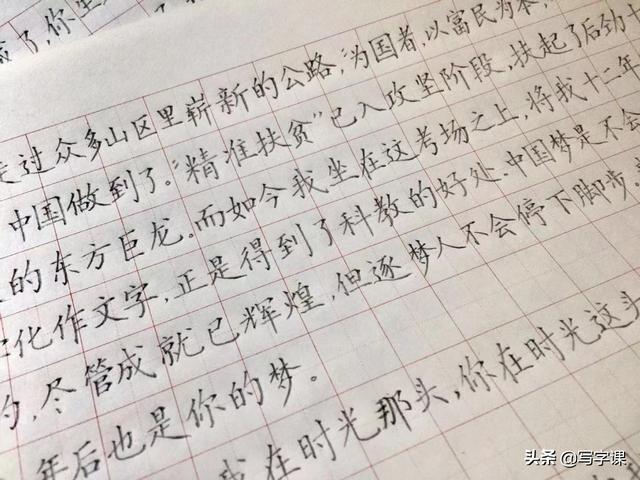 了,你
过众多山区里崭新的公路,为国者,以富民为本,
中国做到了。“精准扶贫”已入攻坚阶段,扶起了后劲十
的东方巨龙。而如今我坐在这考场之上,将我十二年
化作文字,正是得到了科教的好处.中国梦是不会
的,尽管成就已辉煌,但逐梦人不会停下脚步,
年后也是你的梦。
我在时光那头,你在时光这头
头条 @写字课